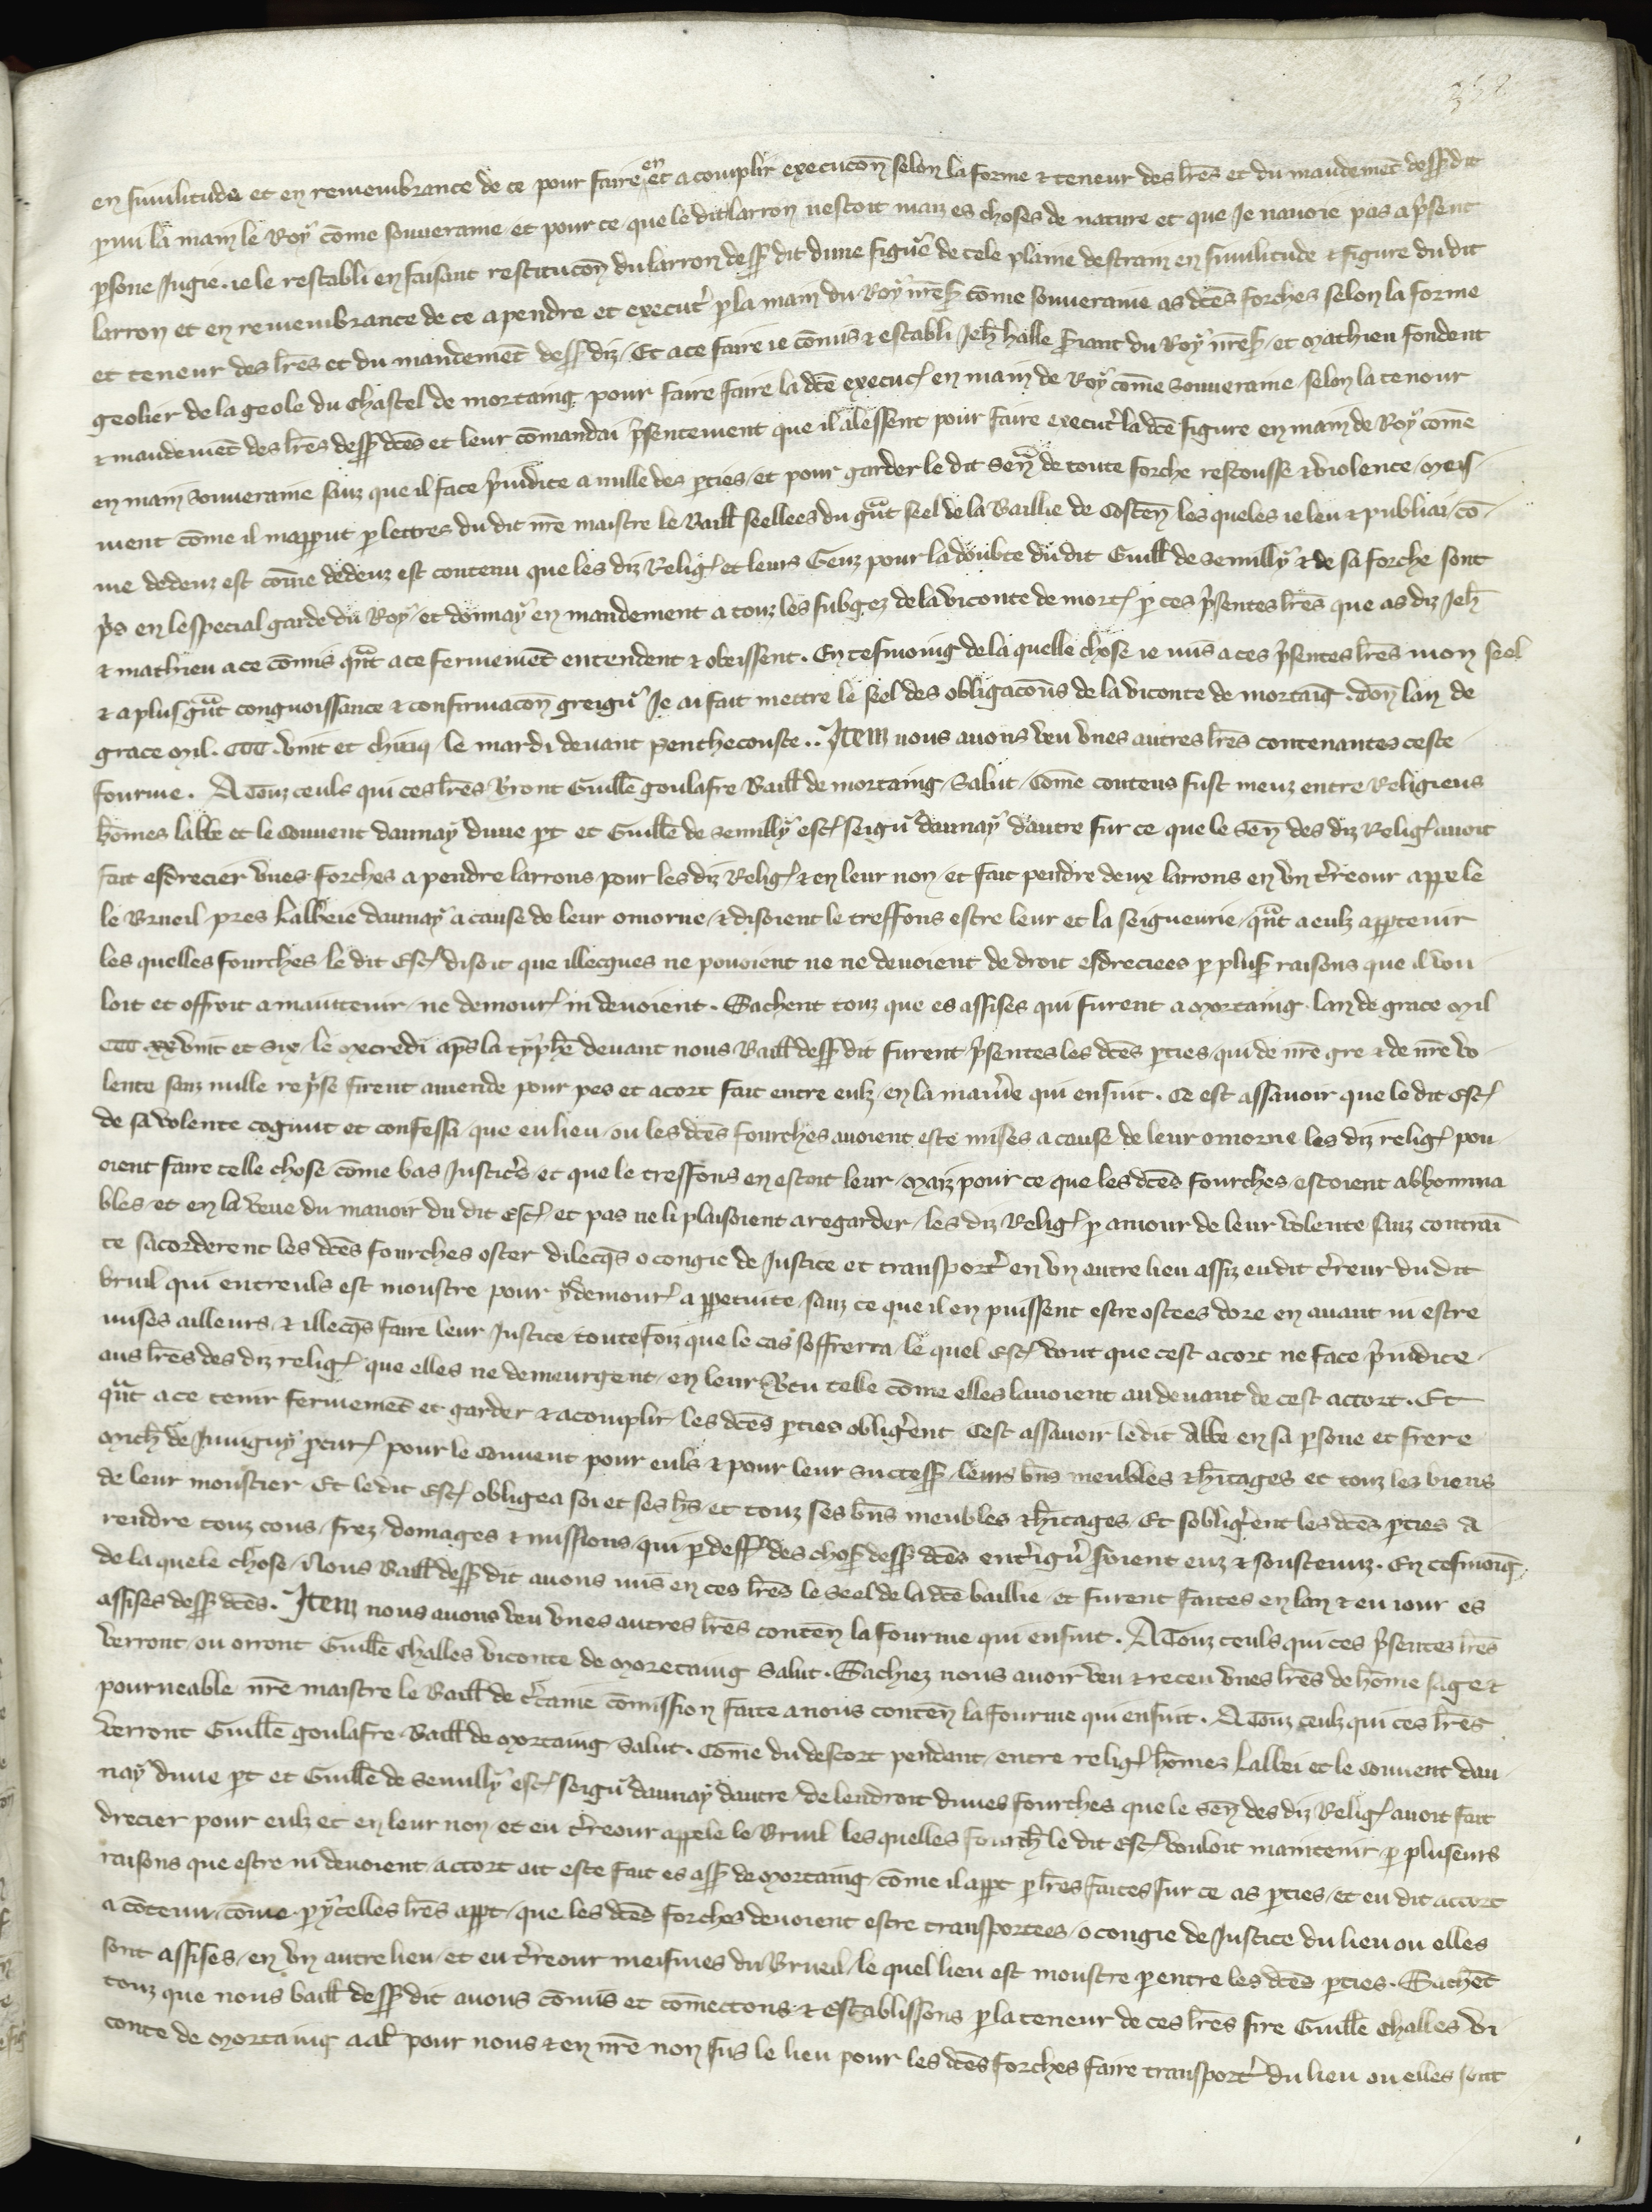 358
en similitude et en remembrance de ce pour faire en et acomplir execucōn selon la forme & teneur des lr̄es et du mandemēt dess' dit
par mi la main le Roy cōme souueraine et pour ce que le dit larron nestoit maiz es choses de nature et que Je nauoie pas a p̄sent
p̄sone Jugie . ie le restabli en faisant restitucōn du larron dess' dit dune figure de tele plaine destrain en similitude & figure du dit
larron et en remembrance de ce a pendre et execut' p la main du Roy nr̄es' cōme souueraine as dc̄es forches selon la forme
et teneur des lr̄es et du mandemēt dess' diz . Et a ce faire ie cōmis & establi Jeh̄ halle s'iant du Roy nr̄es' et Mathieu fondent
geolier de la geole du chastel de mortaing pour faire faire la dc̄e execuc̄ en main de Roy cōme souueraine selon la tenour
& mandemēt des lr̄es dess' dc̄es et leur cōmandai p̄sentement que il alessent pour faire execut' la dc̄e figure en main de Roy cōme
en main souueraine sanz que il face p̄iudice a nulle des pties et pour garder le dit Sen̄ de toute forche rescousse & violence meis
ment cōme il mapput p lettres du dit nr̄e maistre le Baill' seellees du gn̄t seel de la Baillie de Costen̄ les queles ie leu & publiai cō
me dedenz est cōme dedenz est contenu que les diz Relig' et leurs Genz pour la doubte du dit Guill' de Semilly & de sa forche sont
p̄s en lespecial garde du Roy et donnay en mandement a touz les subgez de la viconte de mort' p ces p̄sentes lr̄es que as diz Jeh̄
& mathieu a ce cōmis qn̄t a ce fermemēt entendent & obeissent . En tesmoing de la quelle chose ie mis a ces p̄sentes lr̄es mon seel
& a plus gn̄t congnoissance & confirmacōn greign' Je ai fait mettre le seel des obligacōns de la viconte de mortaig . don̄ lan de
grace Mil . CCC . vint et chinq le mardi deuant penthecouste .. Item nous auons veu vnes autres lr̄es contenantes ceste
fourme . A Touz ceuls qui ces lr̄es v'ront Guille' goulafre Baill' de mortaing Salut . Cōme contens fust meuz entre Religieus
hōmes labbe et le Conuent daunay dune pt et Guille' de Semilly esc' seign' daunay dautre sur ce que le Sen̄ des diz Relig' auoit
fait esdrecier vnes forches a pendre larrons pour les diz Relig' & en leur non et fait pendre deux larrons en vn t'reour appele
le Brueil pres Labbeie daunay a cause de leur omorne & disoient le treffons estre leur et la seigneurie qn̄t a eulz apptenir
les quelles fourches le dit Esc' disoit que illecques ne pouoient ne ne deuoient de droit esdreciees p plus' raisons que il vou
loit et offroit a maintenir ne demour' ni deuoient . Sachent touz que es assises qui furent a Mortaing lan de grace Mil
CCC xx vint et Six le Mecredi aps la typhē deuant nous Baill' dess' dit furent p̄sentes les dc̄es pties qui de nr̄e gre & de nr̄e vo
lente sanz nulle rep̄se firent amende pour pes et acort fait entre eulz en la manie' qui ensuit . Ce est assauoir que le dit Esc'
de sa volente cognut et confessa que eu lieu ou les dc̄es fourches auoient este mises a cause de leur omorne les diz relig' pou
oient faire telle chose cōme bas Justic's et que le tressons en estoit leur Maiz pour ce que les dc̄es fourches estoient abhomina
bles et en la veue du manoir du dit Esc' et pas ne li plaisoient a regarder les diz Relig' p amour de leur volente sanz contraī
te sacorderent les dc̄es fourches oster dilecq̄s o congie de Justice et transport' en vn autre lieu assiz eu dit t'reur du dit
bruil qui entreuls est monstre pour y demour' a ppetuite sanz ce que il en puissent estre ostees dore en auant ni estre
mises ailleurs & illecq̄s faire leur Justice toutefoiz que le cas soffrerra le quel Esc' vout que cest acort ne face p̄iudice
aus lr̄es des diz relig' que elles ne demeurgent en leur v'tu telle cōme elles lauoient au deuant de cest accort . Et
qn̄t a ce tenir fermemēt et garder & acomplir les dc̄es pties oblig'ent Cest assauoir le dit Abbe en sa psone et frere
Mich' de Juuigny pcur' pour le conuent pour euls & pour leur success' leurs bn̄s meubles & h̄itages et touz les biens
de leur moustier Et le dit Esc' obligea soi et ses h̄s et touz ses bn̄s meubles & h̄itages . Et soblig'ent les dc̄es pties A
rendre touz cous frez domages & missions qui p deff' des chos' dess' dc̄es ent'ign' s'oient euz & soustenuz . En tesmoīg
de la quele chose Nous Baill' dess' dit auons mis en ces lr̄es le Seel de la dc̄e baillie et furent faites en lan & eu iour es
assises dess' dc̄es . Item nous auons veu vnes autres lr̄es conten̄ la fourme qui ensuit . A Touz ceuls qui ces p̄sentes lr̄es
verront ou orront Guille' Challes viconte de Moretaing Salut . Sachiez nous auoir veu & receu vnes lr̄es de hōme sage &
pourueable nr̄e maistre le Baill' de c'taine cōmission faite a nous conten̄ la fourme qui ensuit . A Touz ceulz qui ces lr̄es
verront Guille' goulafre Baill' de Mortaing Salut . Cōme du descort pendant entre relig' hōmez Labbei et le Conuent dau
nay dune pt et Guille' de Semilly esc' seign' daunay dautre de lendroit dunes fourches que le Sen̄ des diz Relig' auoit fait
drecier pour eulz et en leur non et eu t'reour appele le Bruil les quelles fourch' le dit Esc' vouloit maintenir p pluseurs
raisons que estre ni deuoient accort ait este fait es ass' de Mortaing cōme il appt p lr̄es faites sur ce as pties et eu dit accort
a cōtenu cōme p ycelles lr̄es appt que les dc̄es forches deuoient estre transportees o congie de Justice du lieu ou elles
sont assises en vn autre lieu et eu t'reour meismes du Brueil le quel lieu est monstre p entre les dc̄es pties . Sachēt
touz que nous baill' dess' dit auons cōmis et cōmettons & establissons p la teneur de ces lr̄es sire Guille' Challes vi
conte de Mortaing a al' pour nous & en nr̄e non sus le lieu pour les dc̄es forches faire transport' du lieu ou elles sont